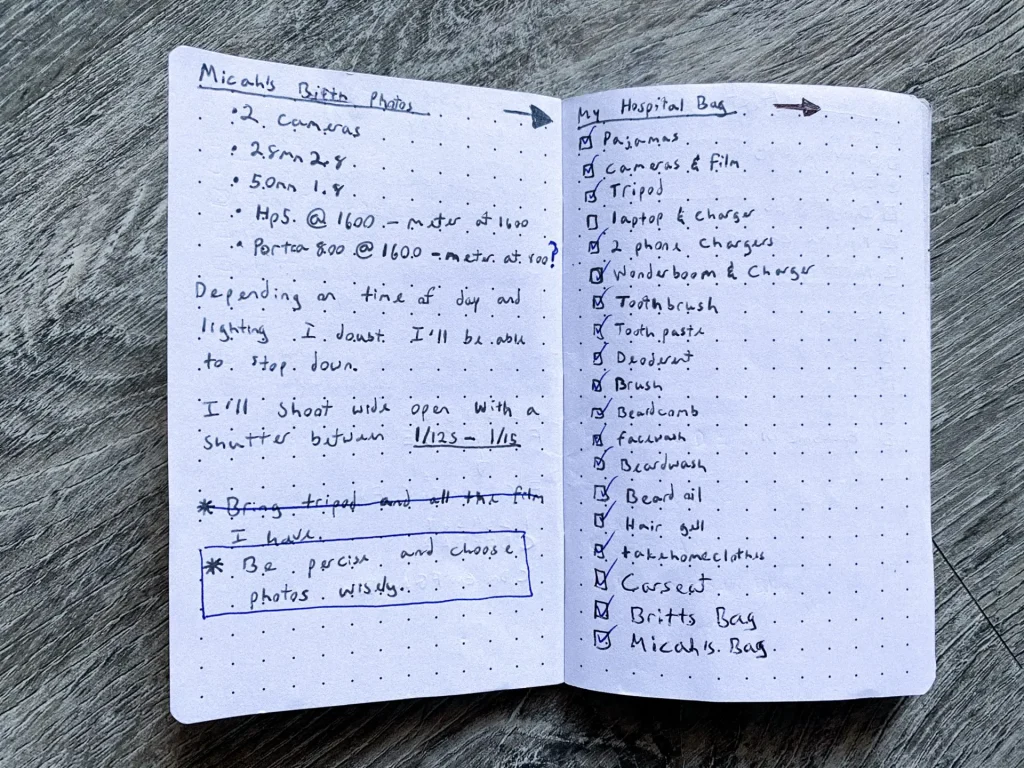 Micah's Birth Photos
• 2 cameras
• 28mm 2.8
• 50mm 1.8
• Hp5 @ 1600 - meter at 1600
• Portra 800 @ 1600 - meter at 800?
Depending on time of day and
lighting I doubt I'll be able
to stop down.
I'll shoot wide open with a
shutter between 1/125 - 1/15
* Bring tripod and all the film
I have.
* Be percise and choose
photos wisely.
My Hospital Bag
Pajamas
Cameras & film
Tripod
laptop & charger
2 phone chargers
Wonderboom & Charger
Toothbrush
Toothpaste
Deoderent
Brush
Beardcomb
facewash
Beardwash
Beard oil
Hair gell
takehomeclothes
Carseat
Britts Bag
Micah's Bag